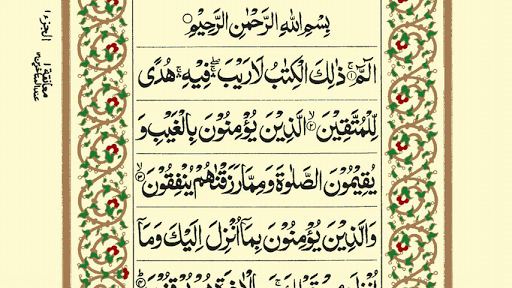 بِسْمِ اللهِ الرَّحْمٰنِ الرَّحِيْمِ ○
الٓمّٓ ۚ﴿۱﴾ ذٰلِكَ الْكِتٰبُ لَا رَيْبَ ۛۖ فِيْهِ ۛۚ هُدًى
لِّلْمُتَّقِيْنَ ۙ﴿۲﴾ الَّذِيْنَ يُؤْمِنُوْنَ بِالْغَيْبِ وَ
يُقِيْمُوْنَ الصَّلٰوةَ وَ مِمَّا رَزَقْنٰهُمْ يُنْفِقُوْنَ ۙ﴿۳﴾
وَالَّذِيْنَ يُؤْمِنُوْنَ بِمَاۤ اُنْزِلَ اِلَيْكَ وَمَاۤ
الجزء ۱
معانقة ۱